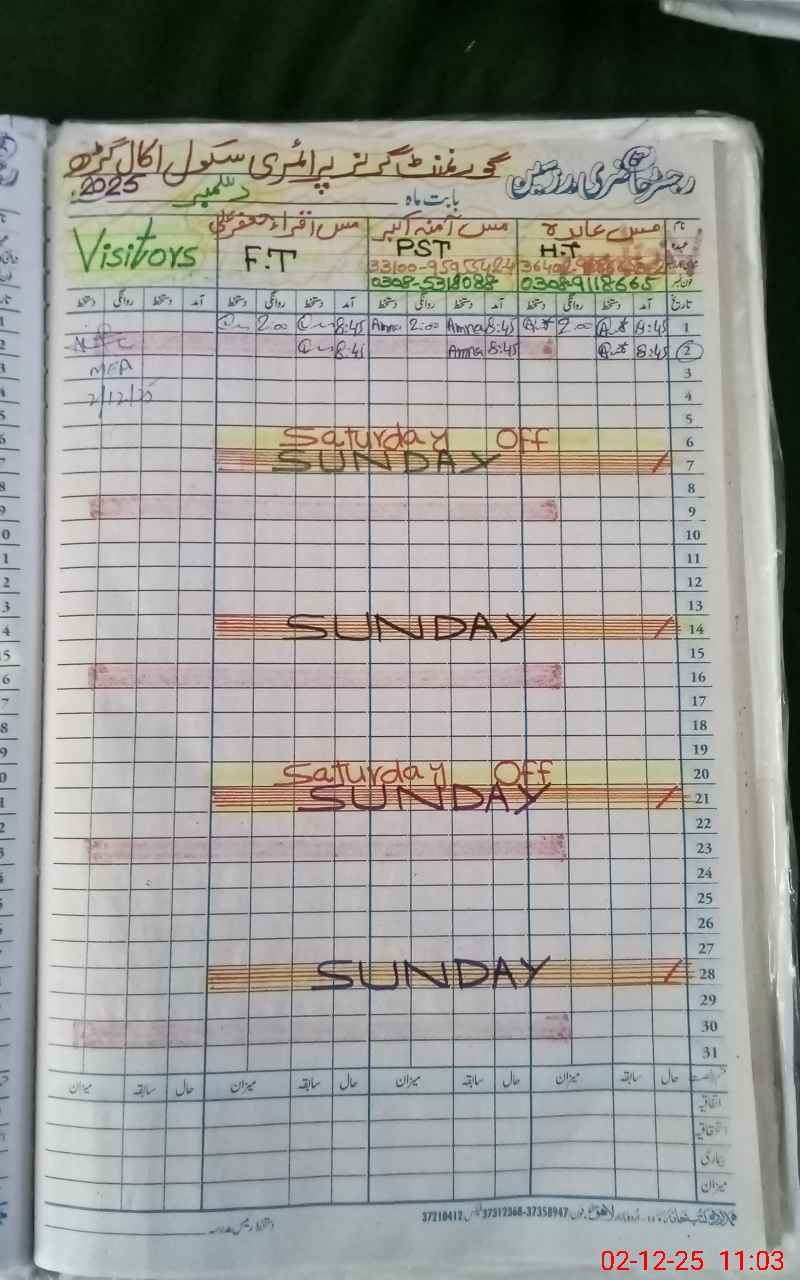 رجسٹر حاضری مدرسین گورنمنٹ گرلز پرائمری سکول اکال گڑھ
بابت ماہ دسمبر 2025
نام مس عابدہ مس آمنہ اکبر مس اقراء جعفر علی Visitors
عہدہ H.T PST F.T
33100-9595542-4
فون نمبر 0308-9118665 0308-5318088
تاریخ آمد دستخط روانگی دستخط آمد دستخط روانگی دستخط آمد دستخط روانگی دستخط آمد دستخط روانگی دستخط
1 8:45 2:00 8:45 Amna 2:00 Amna 8:45 2:00
2 8:45 8:45 Amna 8:45
3 MEA
4 2/12/25
5
6 Saturday Off
7 SUNDAY
8
9
10
11
12
13
14 SUNDAY
15
16
17
18
19
20 Saturday Off
21 SUNDAY
22
23
24
25
26
27
28 SUNDAY
29
30
31
حال سابقہ میزان حال سابقہ میزان حال سابقہ میزان حال سابقہ میزان
اتفاقیہ
استحقاقیہ
بیماری
میزان
اردو بازار لاہور فون 37358947-37312368 فیکس 37210412
دستخط رئیس مدرسہ
02-12-25 11:03